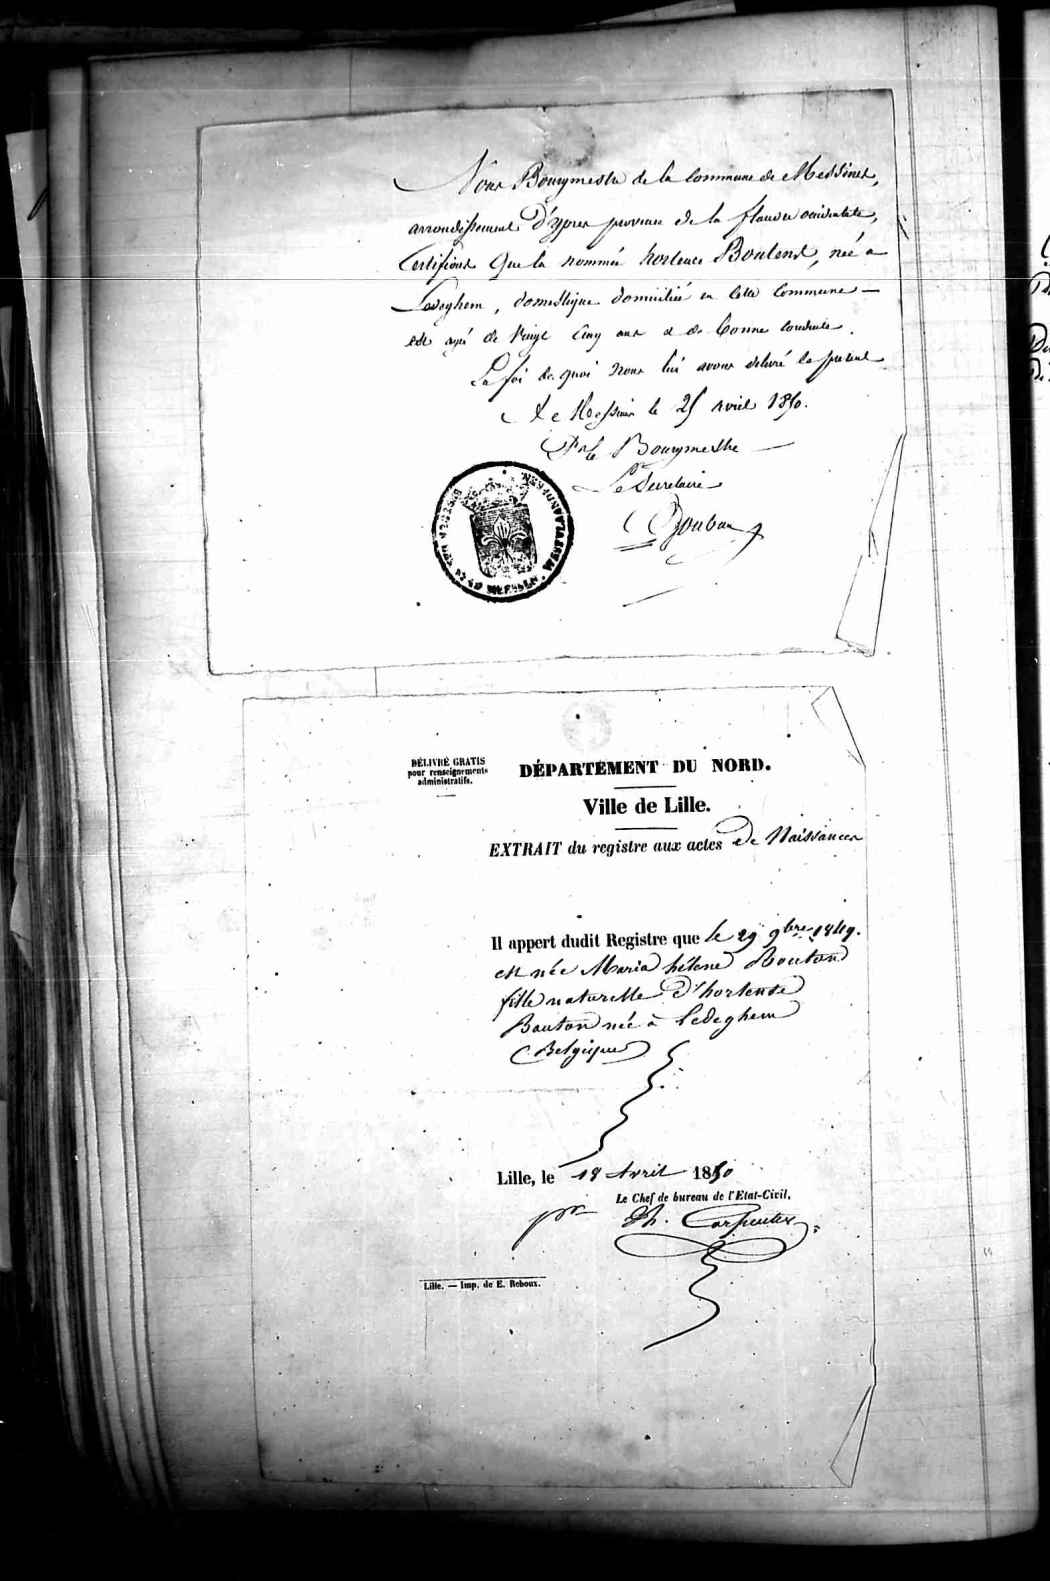 Nous Bourgmestre de la Commune de Messines,
arrondissement d'ypres province de la flandre occidentale,
Certifions que la nommée hortence Boutens, née a
Ledeghem, domestique domiciliée en cette Commune —
est agé de Vingt Cinq ans et de bonne conduite.
En foi de quoi nous lui avons délivré le present
Messines le 25 avril 1850.
Pr le Bourgmestre —
Le Secretaire
WESTVLAANDEREN
DER STAD MEESSEN.
DÉLIVRÉ GRATIS
pour renseignements
administratifs.
DÉPARTEMENT DU NORD.
Ville de Lille.
EXTRAIT du registre aux actes de Naissances
Il appert dudit Registre que le 29 9bre 1849.
est née Maria hélene Bouton
fille naturelle d'hortense
Bouton née à Ledeghem
(Belgique)
Lille, le 18 Avril 1850
Le Chef de bureau de l'Etat-Civil,
pr Th. Carpentier
Lille. — Imp. de E. Reboux.